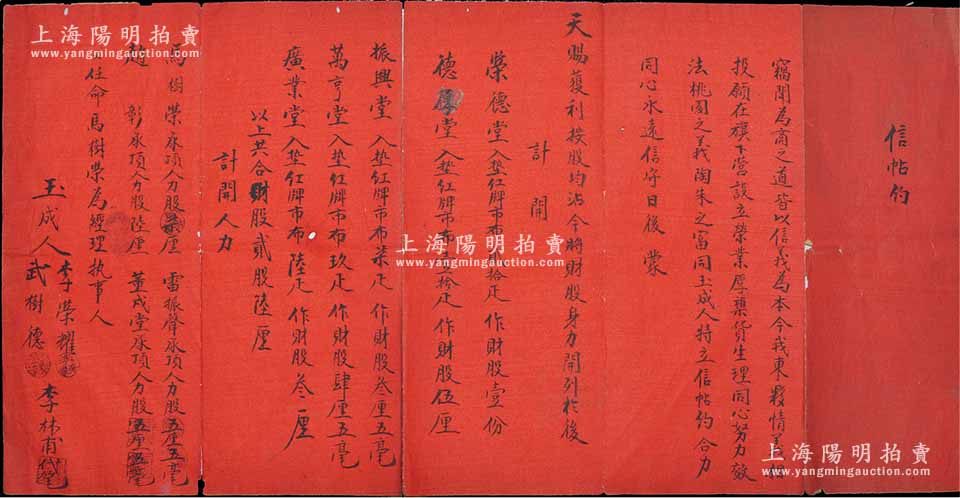 信帖約
竊聞為商之道皆以信義為本今我東夥情義相
投願在旗下營設立榮業厚藥貨生理同心努力效
法桃園之義陶朱之富同玉成人特立信帖約合力
同心永遠信守日後 蒙
天賜獲利按股均沾今將財股身力開列於後
計開
榮德堂入墊紅牌市布拾疋 作財股壹份
德厚堂入墊紅牌市布拾疋 作財股伍厘
振興堂入墊紅牌市布柒疋 作財股叁厘五毫
萬亨堂入墊紅牌市布玖疋 作財股肆厘五毫
廣業堂入墊紅牌市布陸疋 作財股叁厘
以上共合財股貳股陸厘
計開人力
馬樹榮承項人力股厘 雷振聲承項人分股五厘五毫
趙 彰承項人分股陸厘 董成堂承項人分股五厘五毫
任命馬樹榮為經理執事人
玉成人 李榮耀 武樹德 李林甫
上海陽明拍賣
www.yangmingauction.com
上海陽明拍賣
www.yangmingauction.com
上海陽明拍賣
www.yangmingauction.com
上海陽明拍賣
www.yangmingauction.com
上海陽明拍賣
www.yangmingauction.com